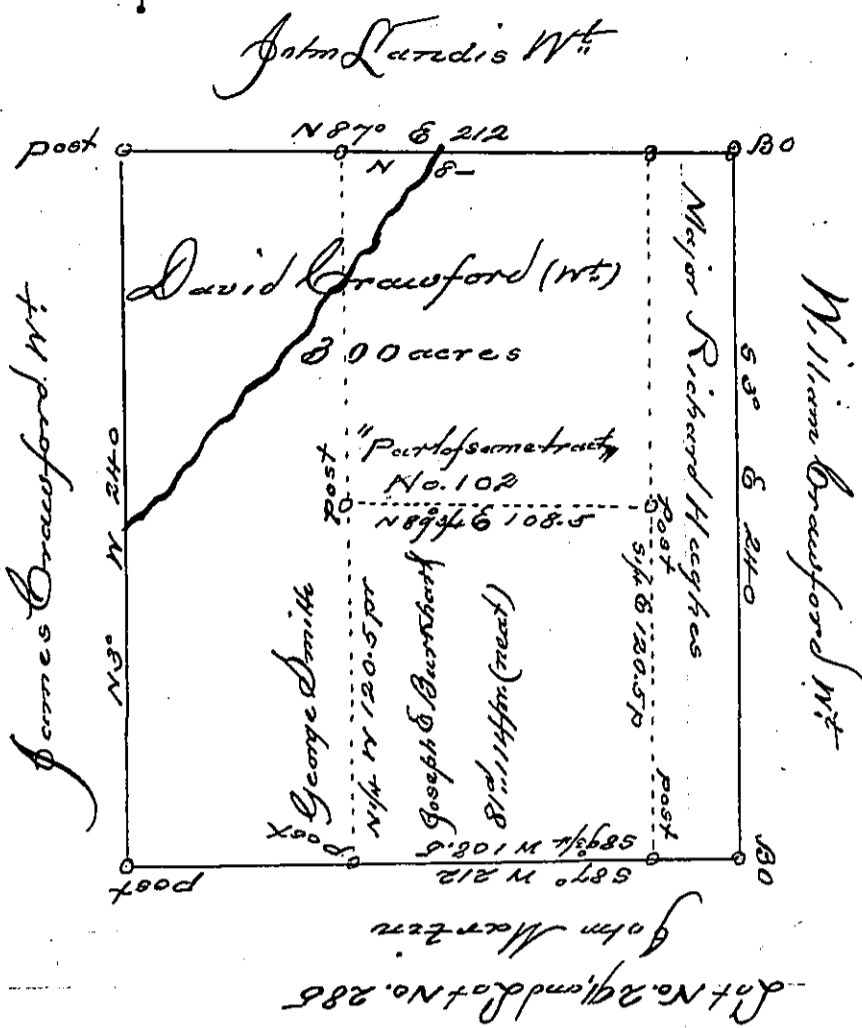 John Landis Wt
N 87° E 212
post
BO
N 8-
David Crawford (Wt)
300 acres
"Part of same tract"
No. 102
post
N 89 3/4 E 108.5
post
Major Richard Hughes
S 3° E 240
William Crawford Wt
James Crawford Wt
N 3° W 240
George Smith
N 1/4 W 120.5 pr
Joseph E Burkhart
S 1/4 E 120.5 p
post
post
S 89 3/4 W 108.5
S 87° W 212
post
BO
John Martin
Lot No. 291, and Lot No. 285